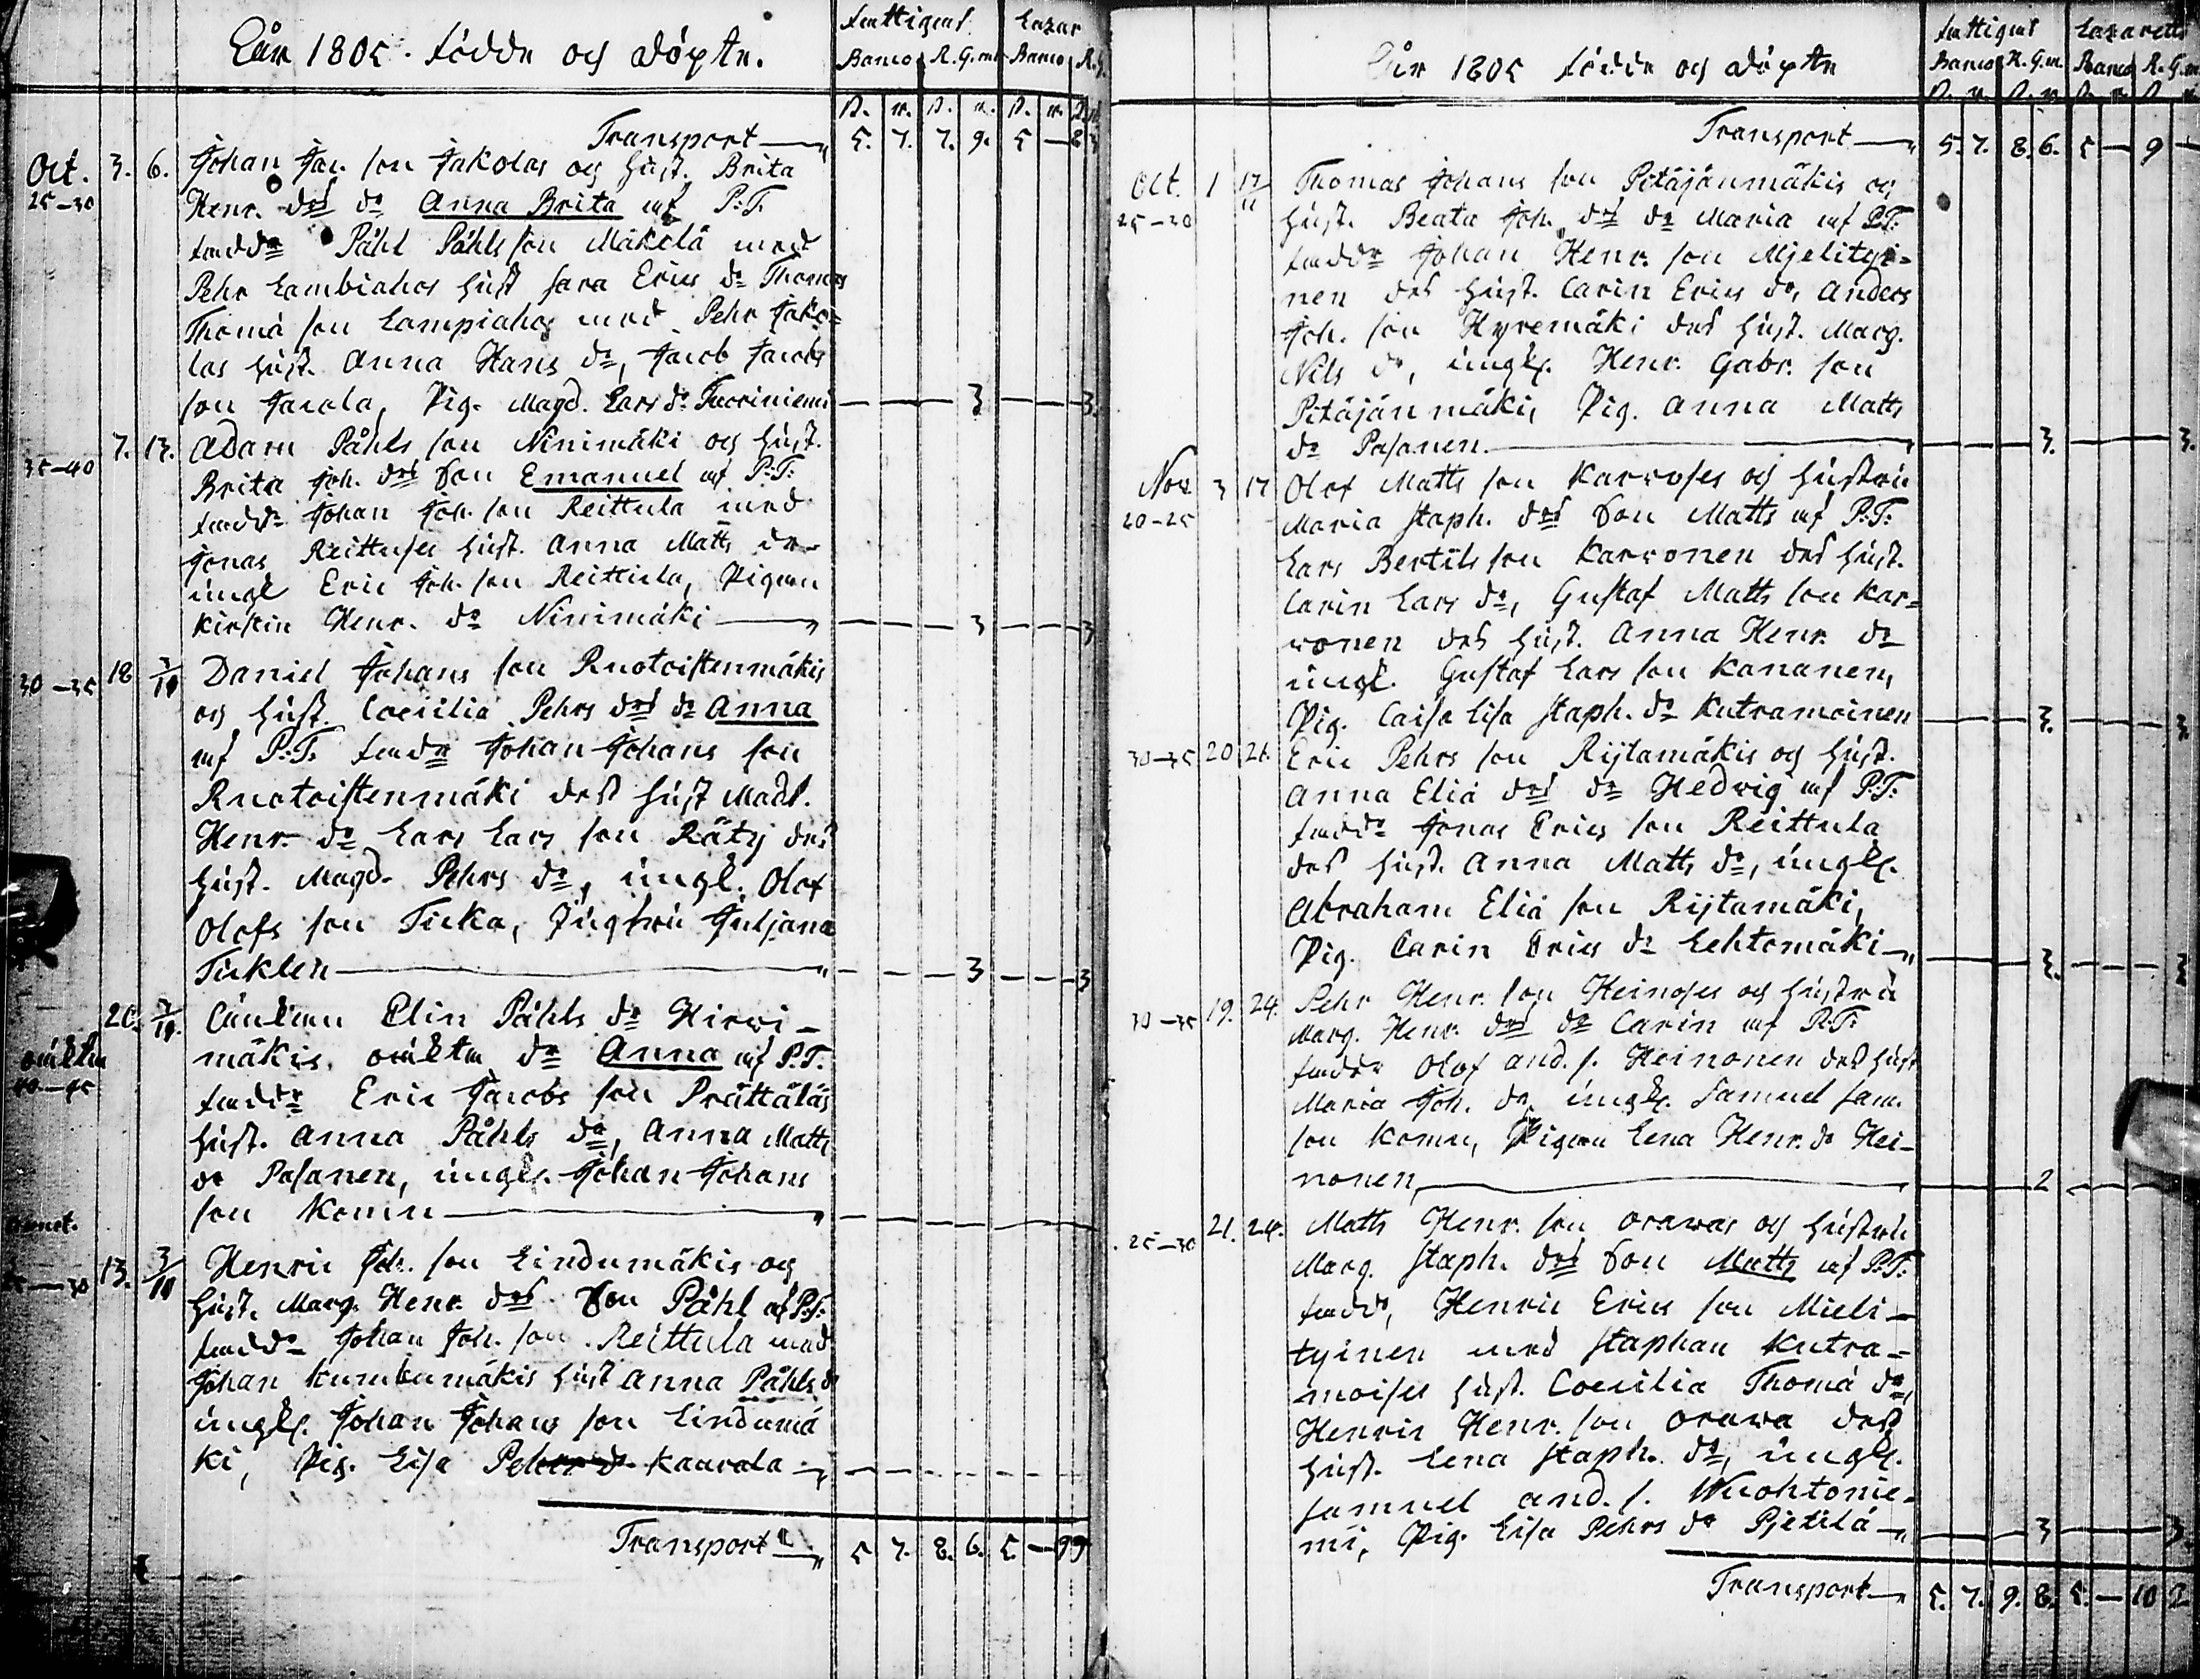 Åår 1805. födde og döpte.
fattigas Lazar
Banco R.G. Banco
Transport 5. 7. 7. 9. 5 — 8 3
Oct. 3. 6. Johan Jac. son Jakolas og Hust. Brita
25–30 Henr. dr: dr Anna Brita af P:T:
fadd: Påhl Påhls son Mäkelä med
Pehr Lambiahos Hust Sara Erics dr Thomas
Thomä son Lampiaho med Pehr Jako=
las Hust. Anna Hans dr, Jacob Jacobs
son Jacola, Pig. Magd. Lars dr Tuoriniemi — 3 — 3.
7. 13. Adam Påhls son Ninimäki og Hust.
35–40 Brita Joh. drs Son Emanuel af P:T:
fadd: Johan Joh. son Reittula med
Jonas Reittuses Hust. Anna Matts dr
ungl Eric Joh. son Reittula, Pigan
Kirstin Henr. dr Ninimäki — 3 — 3
30–35 18 3/10 Daniel Johans son Ruotoistenmäkis
og Hust. Coecilia Pehrs drs dr Anna
af P:T: fadd: Johan Johans son
Ruotoistenmäki des Hust Madl.
Henr. dr Lars Lars son Räty des
Hust. Magd. Pehrs dr, ungl. Olof
Olofs son Ticka, Jungfru Juljana
Ticklen — 3 — 3
20. Elin Påhls dr Hirvi–
mäkis oäkta dr Anna af P:T.
oäkta
40–45 fadd: Eric Jacobs son Prättäläs
Hust. Anna Påhls dr, Anna Matts
dr Pasanen, ungk. Johan Johans
son Komu
13. 3/10 Henric Joh. son Lindumäkis og
–30 Hust. Marg. Henr. drs Son Påhl af P:T:
fadd: Johan Joh. son Reittula med
Johan Kumbumäkis Hust Anna Påhls dr
ungk. Johan Johans son Lindumä
ki, Pig. Lisa Kaarala
Transport 5 7. 8. 6. 5. — 9 9
Åår 1805 födde og döpte
fattigas Lazarett
Banco R.G.m. Banco R.G.m
Transport 5. 7. 8. 6. 5 — 9 —
Oct. 1 17/11 Thomas Johans son Pitäjänmäkis og
25–30 Hust. Beata Joh. drs dr Maria af P:T:
fadd: Johan Henr. son Mjelityi=
nen des Hust. Carin Erics dr, Anders
Joh. son Hyvemäki des Hust. Marg.
Nils dr, ungk. Henr. Gabr. son
Pitäjänmäki, Pig. Anna Matts
dr Pasanen. — 3. — 3.
Nov 3 17 Olof Matts son Karvoses og Hustru
20–25 Maria Staph. drs Son Matts af P:T:
Lars Bertils son Karvonen des Hust.
Carin Lars dr, Gustaf Matts son Kar=
vonen des Hust. Anna Henr. dr
ungk. Gustaf Lars son Kananen,
Pig. Caisa Lisa Staph. dr Kutramoinen — 3. — 3.
30–35 20 21. Eric Pehrs son Rijtamäkis og Hust.
Anna Eliä drs dr Hedvig af P:T:
fadd: Jonas Erics son Reittula
des Hust. Anna Matts dr, ungk.
Abraham Eliä son Rijtamäki,
Pig. Carin Erics dr Lehtomäki — 3. — 3
30–35 19. 24. Pehr Henr. son Heinoses og Hustru
Marg. Henr. drs dr Carin af P:T:
fadd: Olof And. s. Heinonen des Hust
Maria Joh. dr, ungk. Samuel Sam.
son Komu, Pigan Lena Henr. dr Hei–
nonen, — 2
25–30 21. 24. Matts Henr. son Oravas og Hustru
Marg. Staph. drs Son Matts af P:T:
fadd, Henric Erics son Mieli–
tyinen med Staphan Kutra–
moises Hust. Coecilia Thomä dr,
Henric Henr. son Orava des
Hust. Lena Staph. dr, ungk.
Samuel And. s. Wuohtonie–
mi, Pig. Lisa Pehrs dr Pjetilä — 3 — 3.
Transport 5. 7. 9. 8. 5. — 10 2